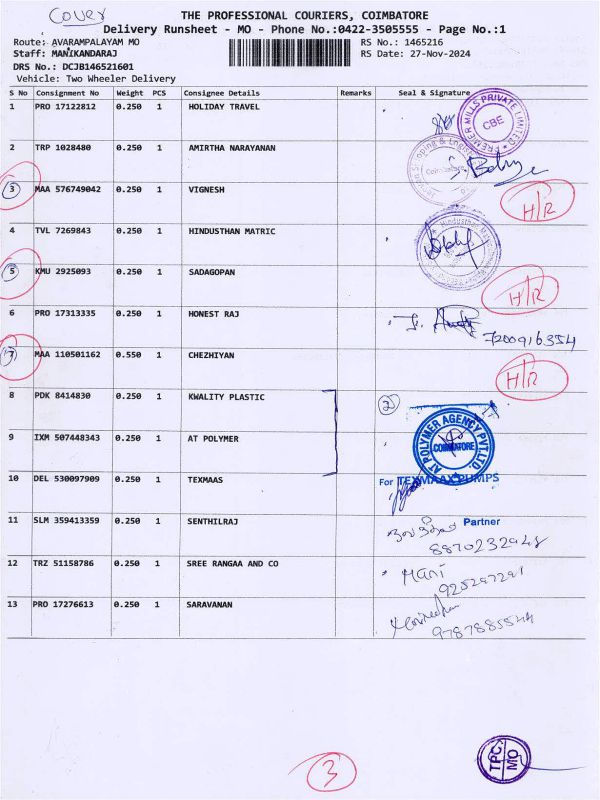 Cover
THE PROFESSIONAL COURIERS, COIMBATORE
Delivery Runsheet - MO - Phone No.:0422-3505555 - Page No.:1
Route: AVARAMPALAYAM MO
RS No.: 1465216
Staff: MANIKANDARAJ
RS Date: 27-Nov-2024
DRS No.: DCJB146521601
Vehicle: Two Wheeler Delivery
S No Consignment No Weight PCS Consignee Details Remarks Seal & Signature
1 PRO 17122812 0.250 1 HOLIDAY TRAVEL
PREMIER MILLS PRIVATE LIMITED CBE
2 TRP 1028480 0.250 1 AMIRTHA NARAYANAN
Shipping & Logistics Coimbatore
3 MAA 576749042 0.250 1 VIGNESH H/R
4 TVL 7269843 0.250 1 HINDUSTHAN MATRIC
Hindusthan
5 KMU 2925093 0.250 1 SADAGOPAN H/R
6 PRO 17313335 0.250 1 HONEST RAJ 7200916354
7 MAA 110501162 0.550 1 CHEZHIYAN H/R
8 PDK 8414830 0.250 1 KWALITY PLASTIC 2
9 IXM 507448343 0.250 1 AT POLYMER
AT POLYMER AGENCY PVT.LTD. COIMBATORE
10 DEL 530097909 0.250 1 TEXMAAS For TEXMAAX PUMPS
Partner
11 SLM 359413359 0.250 1 SENTHILRAJ
8870232948
12 TRZ 51158786 0.250 1 SREE RANGAA AND CO Mani
13 PRO 17276613 0.250 1 SARAVANAN
9787885544
3
TPC MO